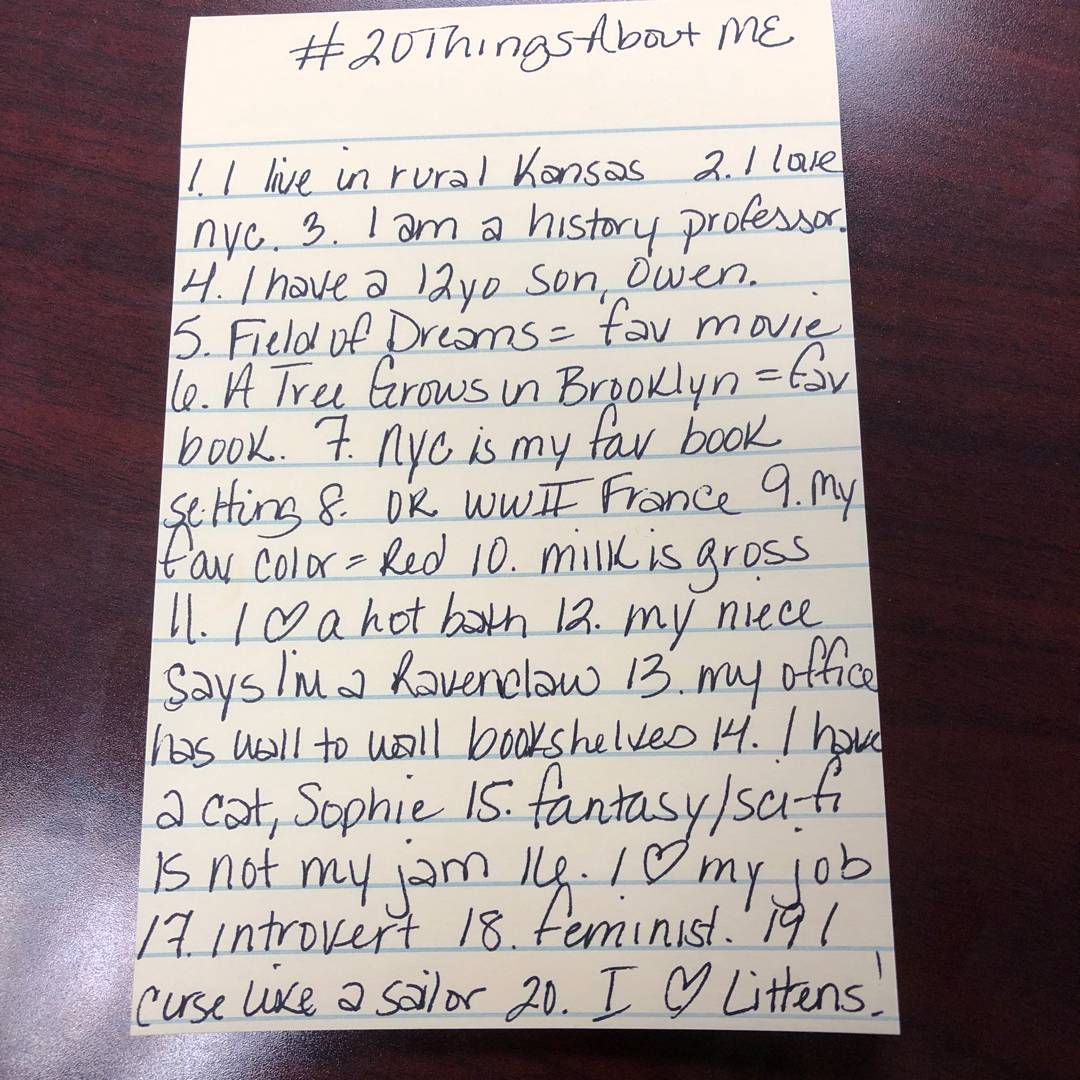 #20ThingsAbout ME
1. I live in rural Kansas 2. I love
nyc. 3. I am a history professor.
4. I have a 12yo son, Owen.
5. Field of Dreams = fav movie
6. A Tree Grows in Brooklyn = fav
book. 7. nyc is my fav book
setting 8. OR WWII France 9. my
fav color = Red 10. milk is gross
11. I ♡ a hot bath 12. my niece
says I'm a Ravenclaw 13. my office
has wall to wall bookshelves 14. I have
a cat, Sophie 15. fantasy/sci-fi
is not my jam 16. I ♡ my job
17. introvert 18. feminist. 19 I
curse like a sailor 20. I ♡ Littens!